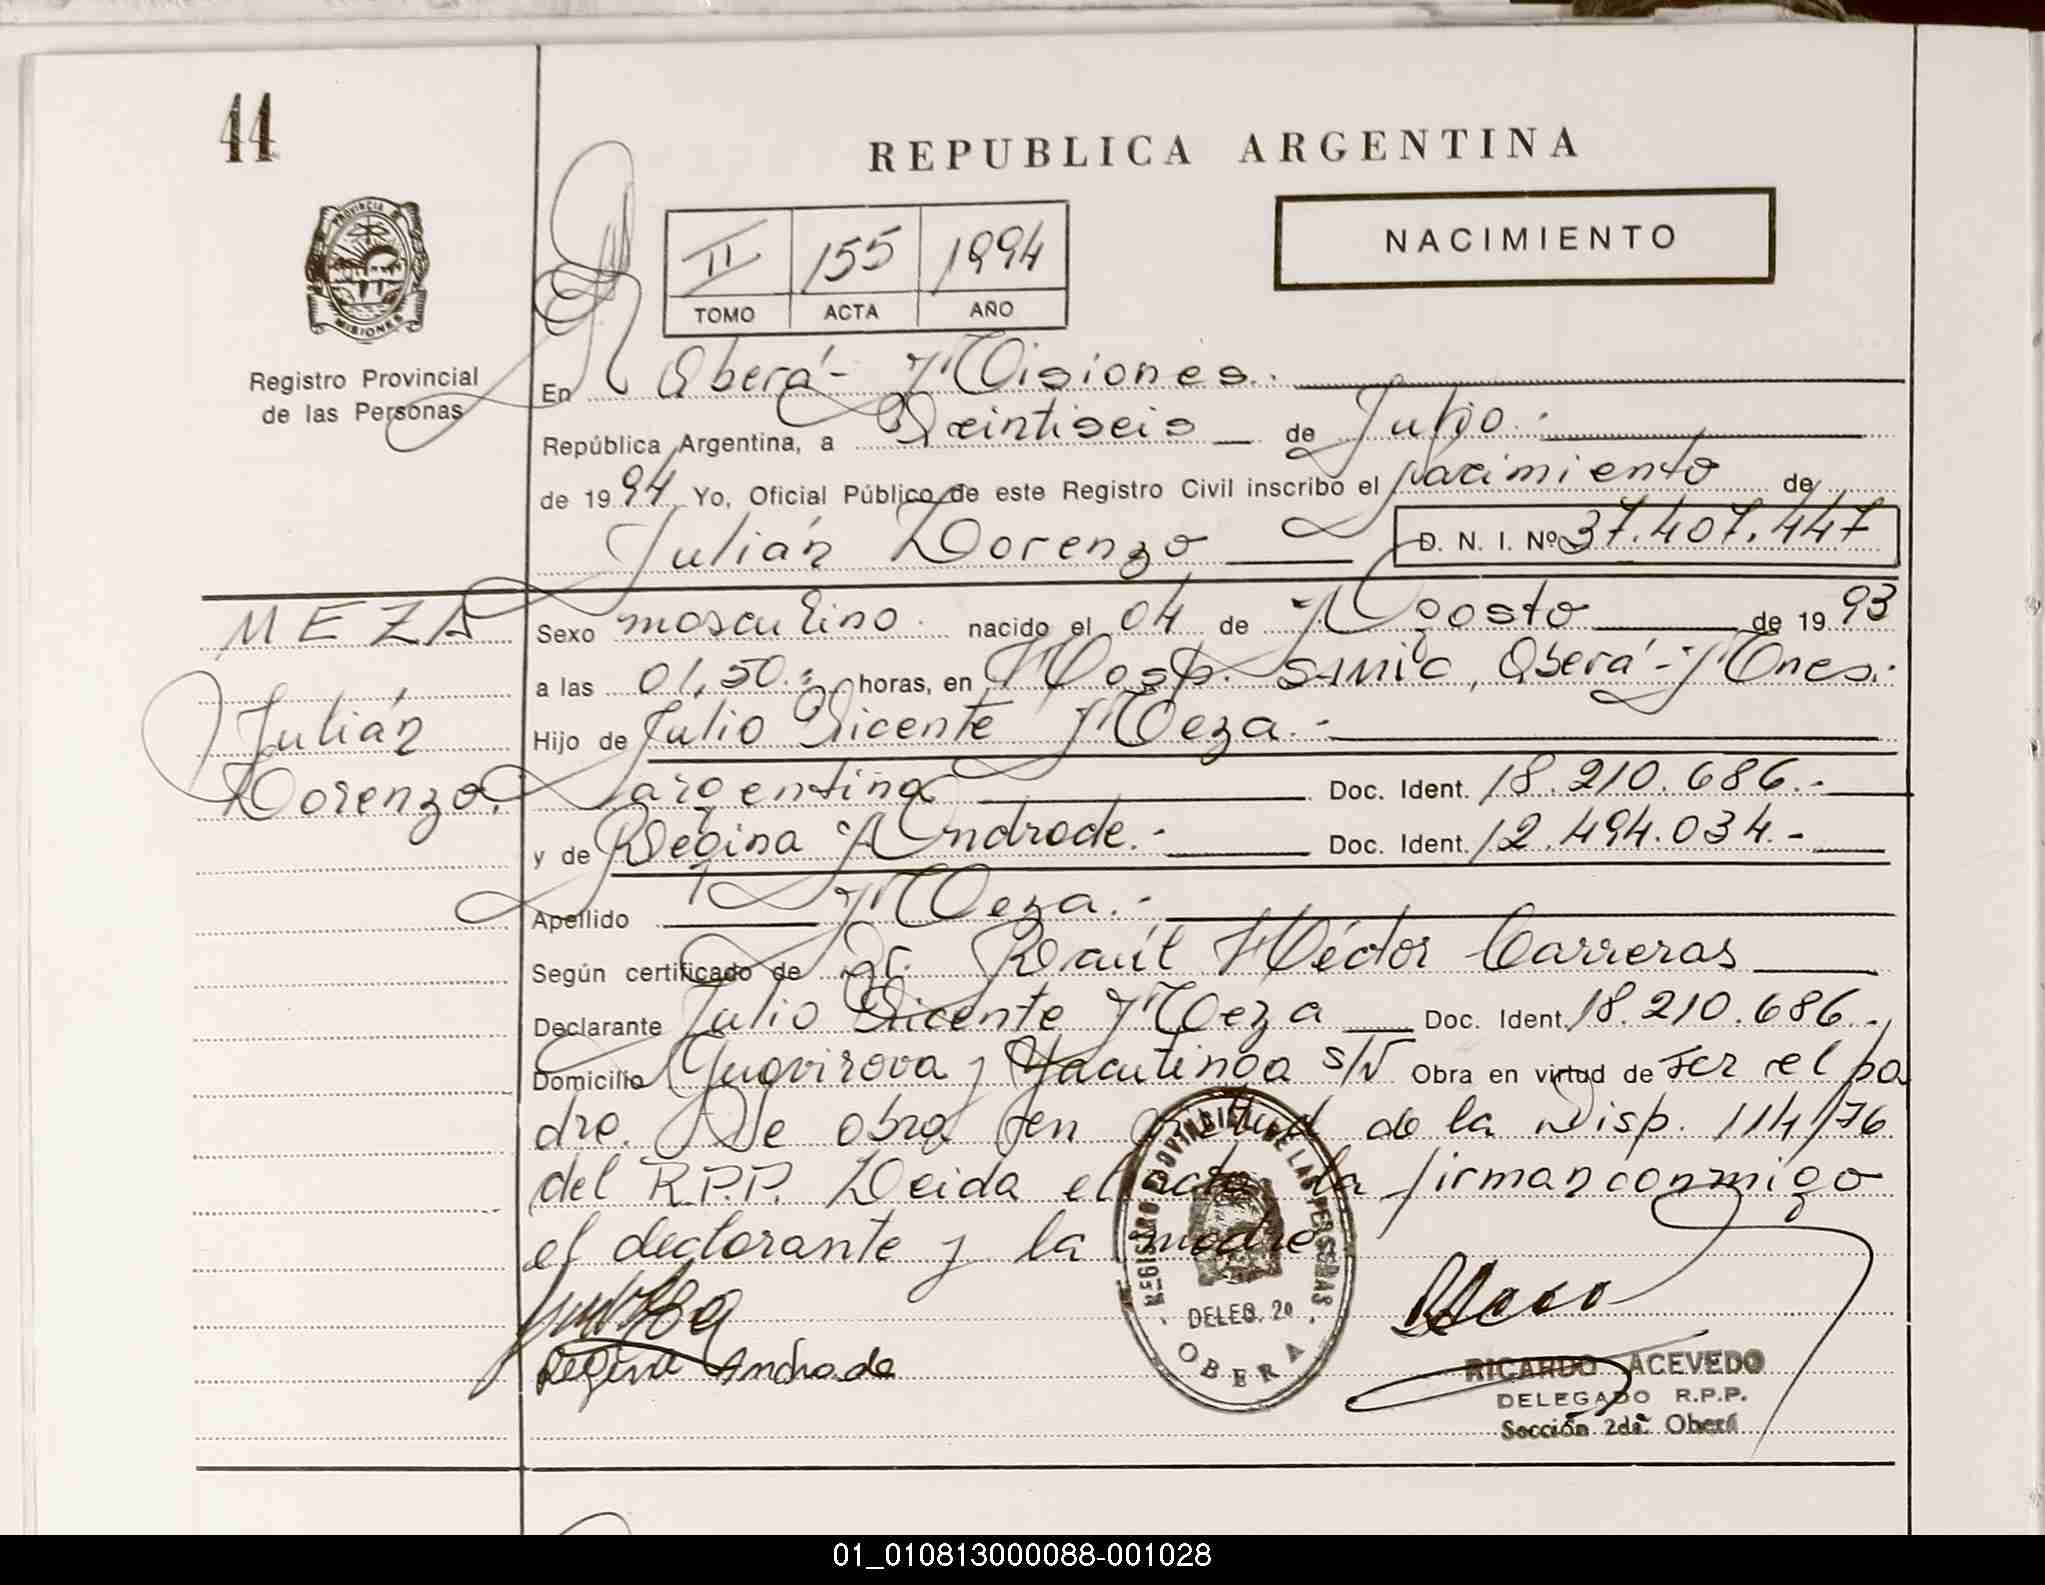 44
REPUBLICA ARGENTINA
PROVINCIA DE
MISIONES
Registro Provincial
de las Personas
II 155 1994
TOMO ACTA AÑO
NACIMIENTO
En Oberá - Misiones.-
República Argentina, a Veintiseis de Julio.-
de 1994 Yo, Oficial Público de este Registro Civil inscribo el nacimiento de
Julián Lorenzo D. N. I. Nº 37.407.447
MEZA
Julián
Lorenzo.
Sexo masculino. nacido el 04 de Agosto de 1993
a las 01,50.- horas, en Hosp. SAMIC, Oberá - Mnes.-
Hijo de Julio Vicente Meza.-
argentina Doc. Ident. 18.210.686.-
y de Regina Andrade.- Doc. Ident. 12.494.034.-
Apellido Meza.-
Según certificado de Dr. Raúl Héctor Carreras
Declarante Julio Vicente Meza Doc. Ident. 18.210.686.-
Domicilio y Yacutinga S/N Obra en virtud de ser el pa
dre. Se obra en virtud de la Disp. 114/76
del R.P.P. Leida el acta la firman conmigo
el declarante y la madre
Regina Andrade
REGISTRO PROVINCIAL DE LAS PERSONAS
DELEG. 20
OBERA
RICARDO ACEVEDO
DELEGADO R.P.P.
Sección 2da. Oberá
01_010813000088-001028